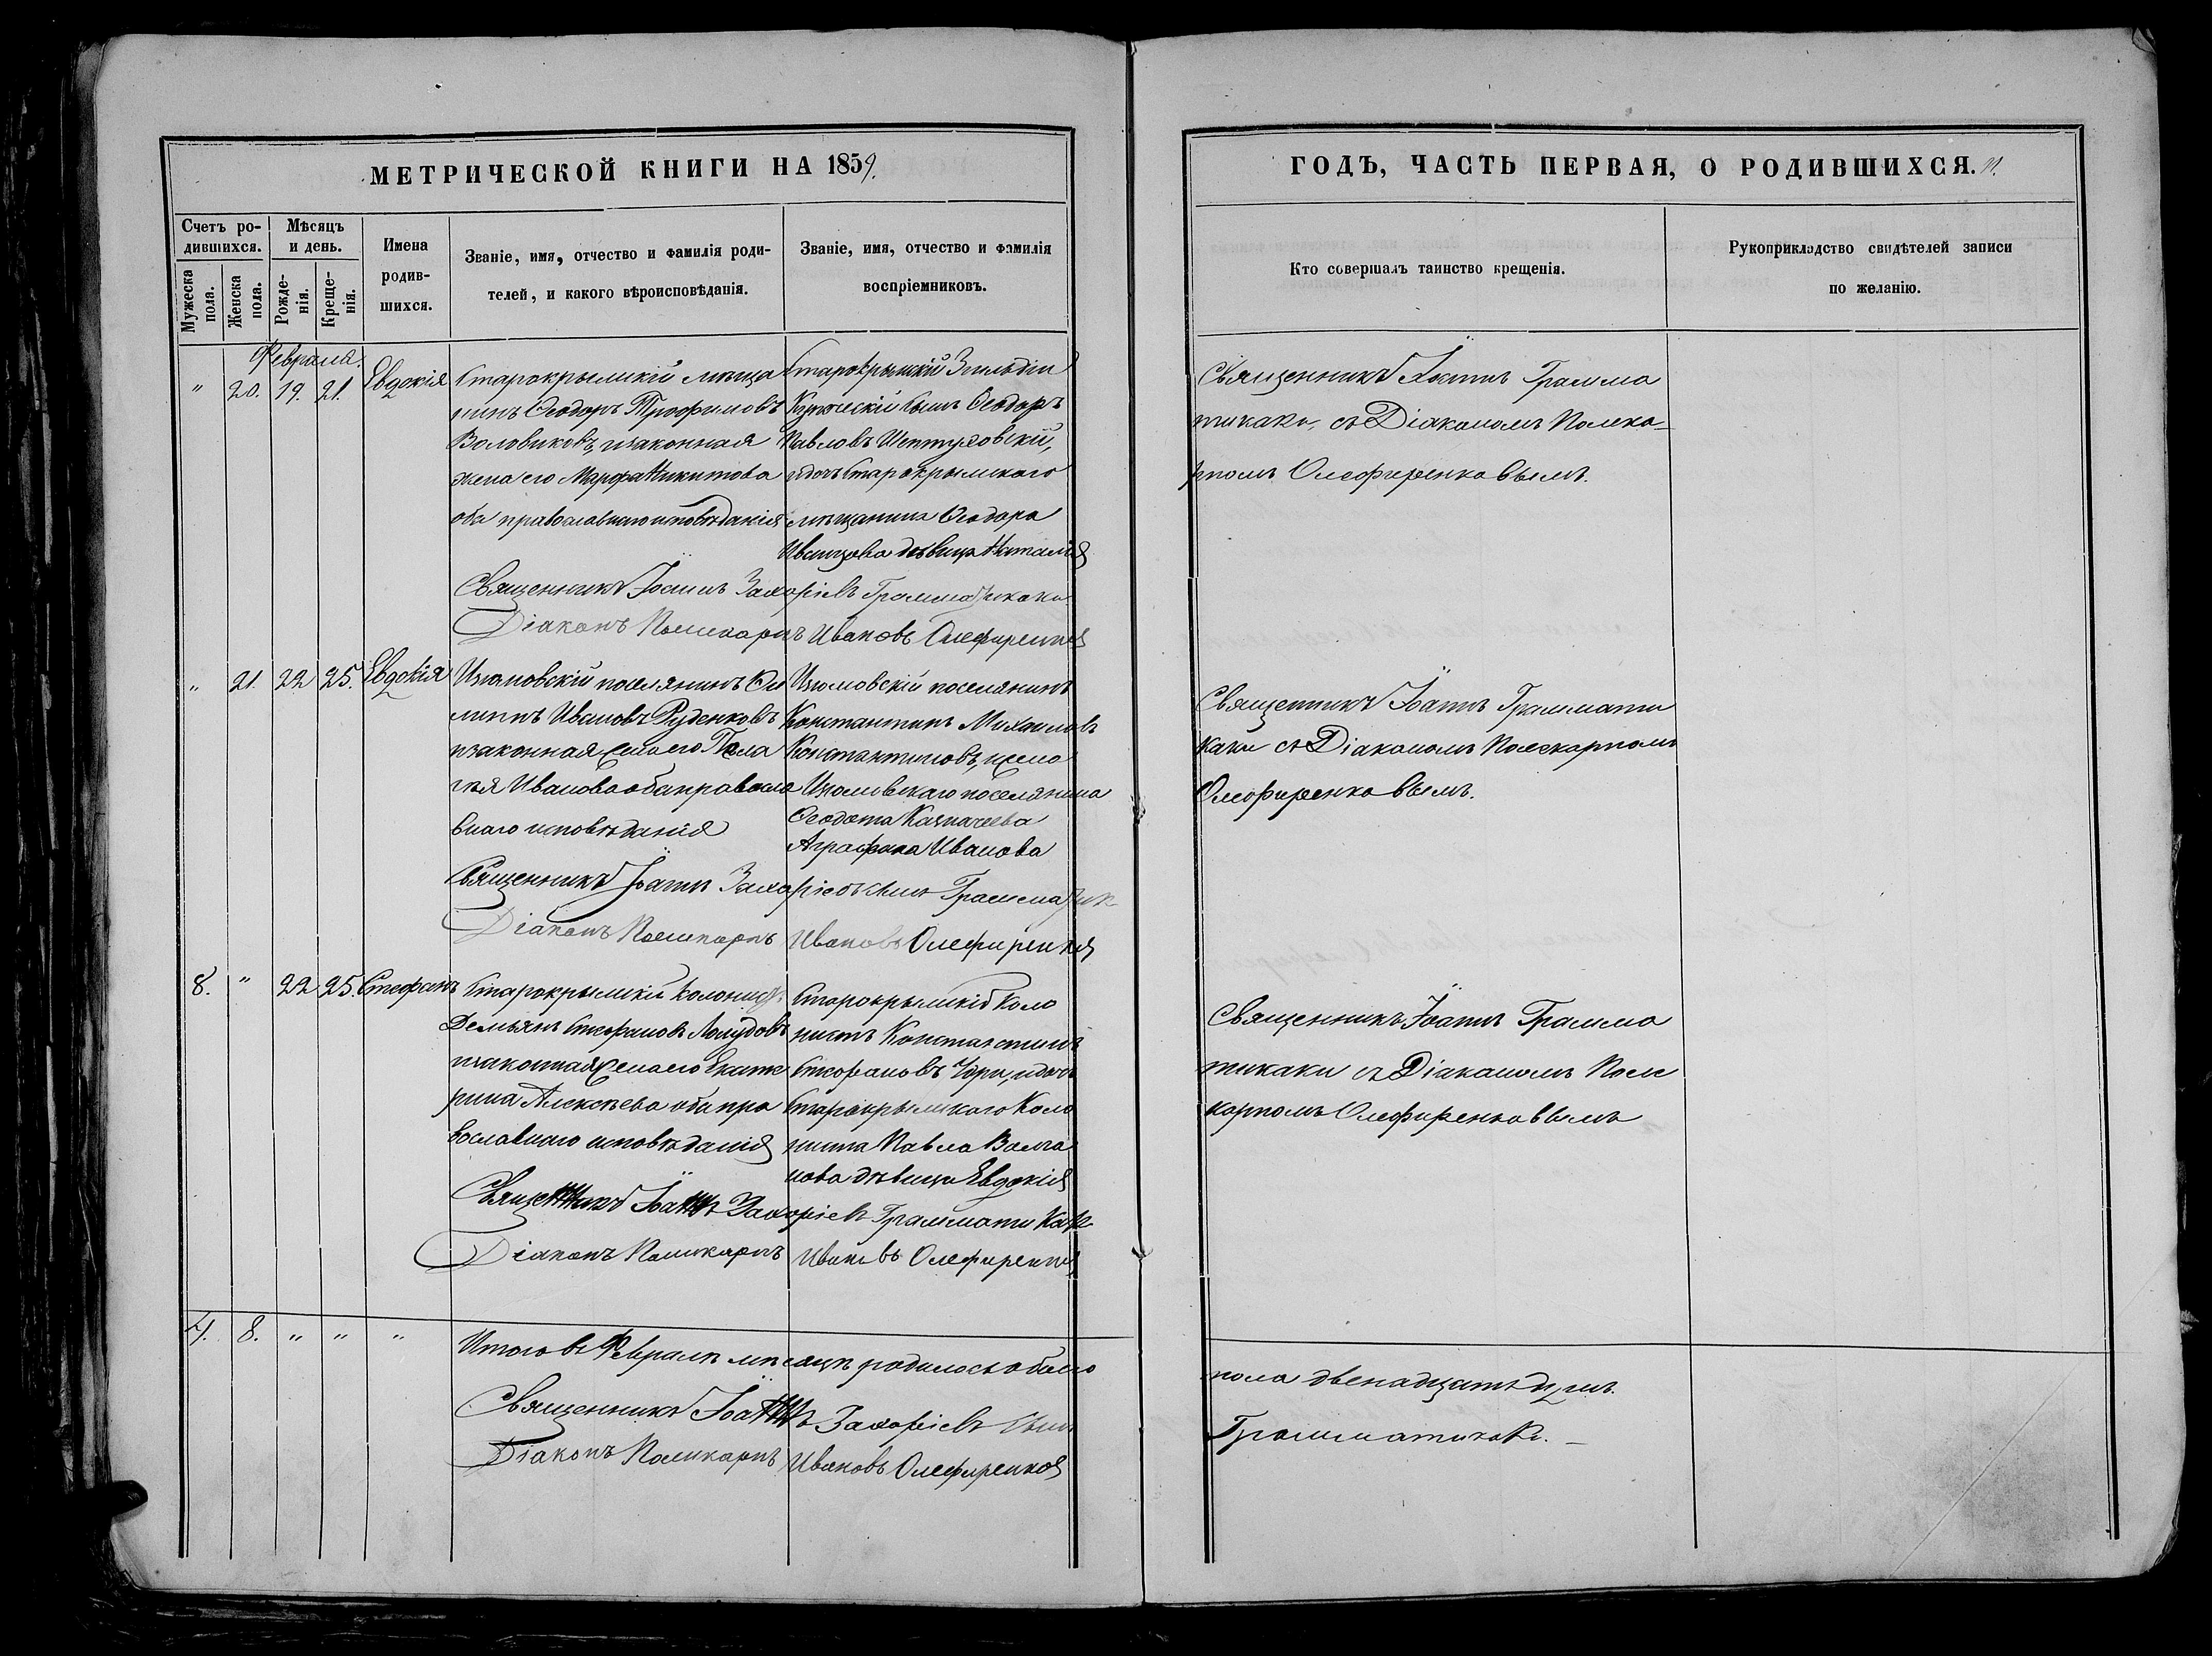 МЕТРИЧЕСКОЙ КНИГИ НА 1859.
ГОДЪ, ЧАСТЬ ПЕРВАЯ, О РОДИВШИХСЯ. 11.
Счетъ ро-
дившихся.
Мужеска
пола.
Женска
пола.
Мѣсяцъ
и день.
Рожде-
нія.
Креще-
нія.
Имена
родив-
шихся.
Званіе, имя, отчество и фамилія роди-
телей, и какого вѣроисповѣданія.
Званіе, имя, отчество и фамилія
воспріемниковъ.
Кто совершалъ таинство крещенія.
Рукоприкладство свидѣтелей записи
по желанію.
Февраля.
" 20. 19. 21. Евдокія
Старокрымскій мѣща
нинъ Ѳеодоръ Трофимовъ
Воловиковъ, изаконная
жена его Марфа Никитова
оба православнаго исповѣданія
Старокрымскій
купческій сынъ Ѳеодоръ
Павловъ
идочь Старокрымскаго
мѣщанина Ѳеодора
дѣвица Наталія
Священникъ Іоаннъ Захаріевъ Грамматикаки
Діаконъ Поликарпъ Ивановъ Олефиренков
Священникъ Іоаннъ Грамма
тикаки, съ Діакономъ Полика-
рпомъ Олефиренковымъ.
" 21. 22 25. Евдокія
Изюмовскій поселянинъ Фи
липпъ Ивановъ Руденковъ
изаконная жена его Пела
гѣя Иванова оба правосла
внаго исповѣданія
Изюмовскій поселянинъ
Константинъ Михаиловъ
Константиновъ, ижена
Изюмовскаго поселянина
Ѳеодота Казначеева
Аграфена Иванова
Священникъ Іоаннъ Захаріевъ сынъ Грамматик
Діаконъ Поликарпъ Ивановъ Олефиренков
Священникъ Іоаннъ Граммати
каки съ Діакономъ Поликарпомъ
Олефиренковымъ.
8. " 22 25. Стефанъ
Старокрымскій колонистъ
Демьянъ Стефановъ
изаконная жена его Екате
рина Алексѣева оба пра
вославнаго исповѣданія
Старокрымскій Коло
нистъ Константинъ
Стефановъ идочь
Старокрымскаго Коло
ниста Павла Волга
нова дѣвица Евдокія
Священникъ Іоаннъ Захаріевъ Грамматикаки
Діаконъ Поликарпъ Ивановъ Олефиренков
Священникъ Іоаннъ Грамма
тикаки съ Діакономъ Поли
карпомъ Олефиренковымъ
4. 8. " " "
Итого въ Февралѣ мѣсяцѣ родилось обаего
пола двенадцать душъ.
Священникъ Іоаннъ Захаріевъ сынъ
Грамматикаки.
Діаконъ Поликарпъ Ивановъ Олефиренков